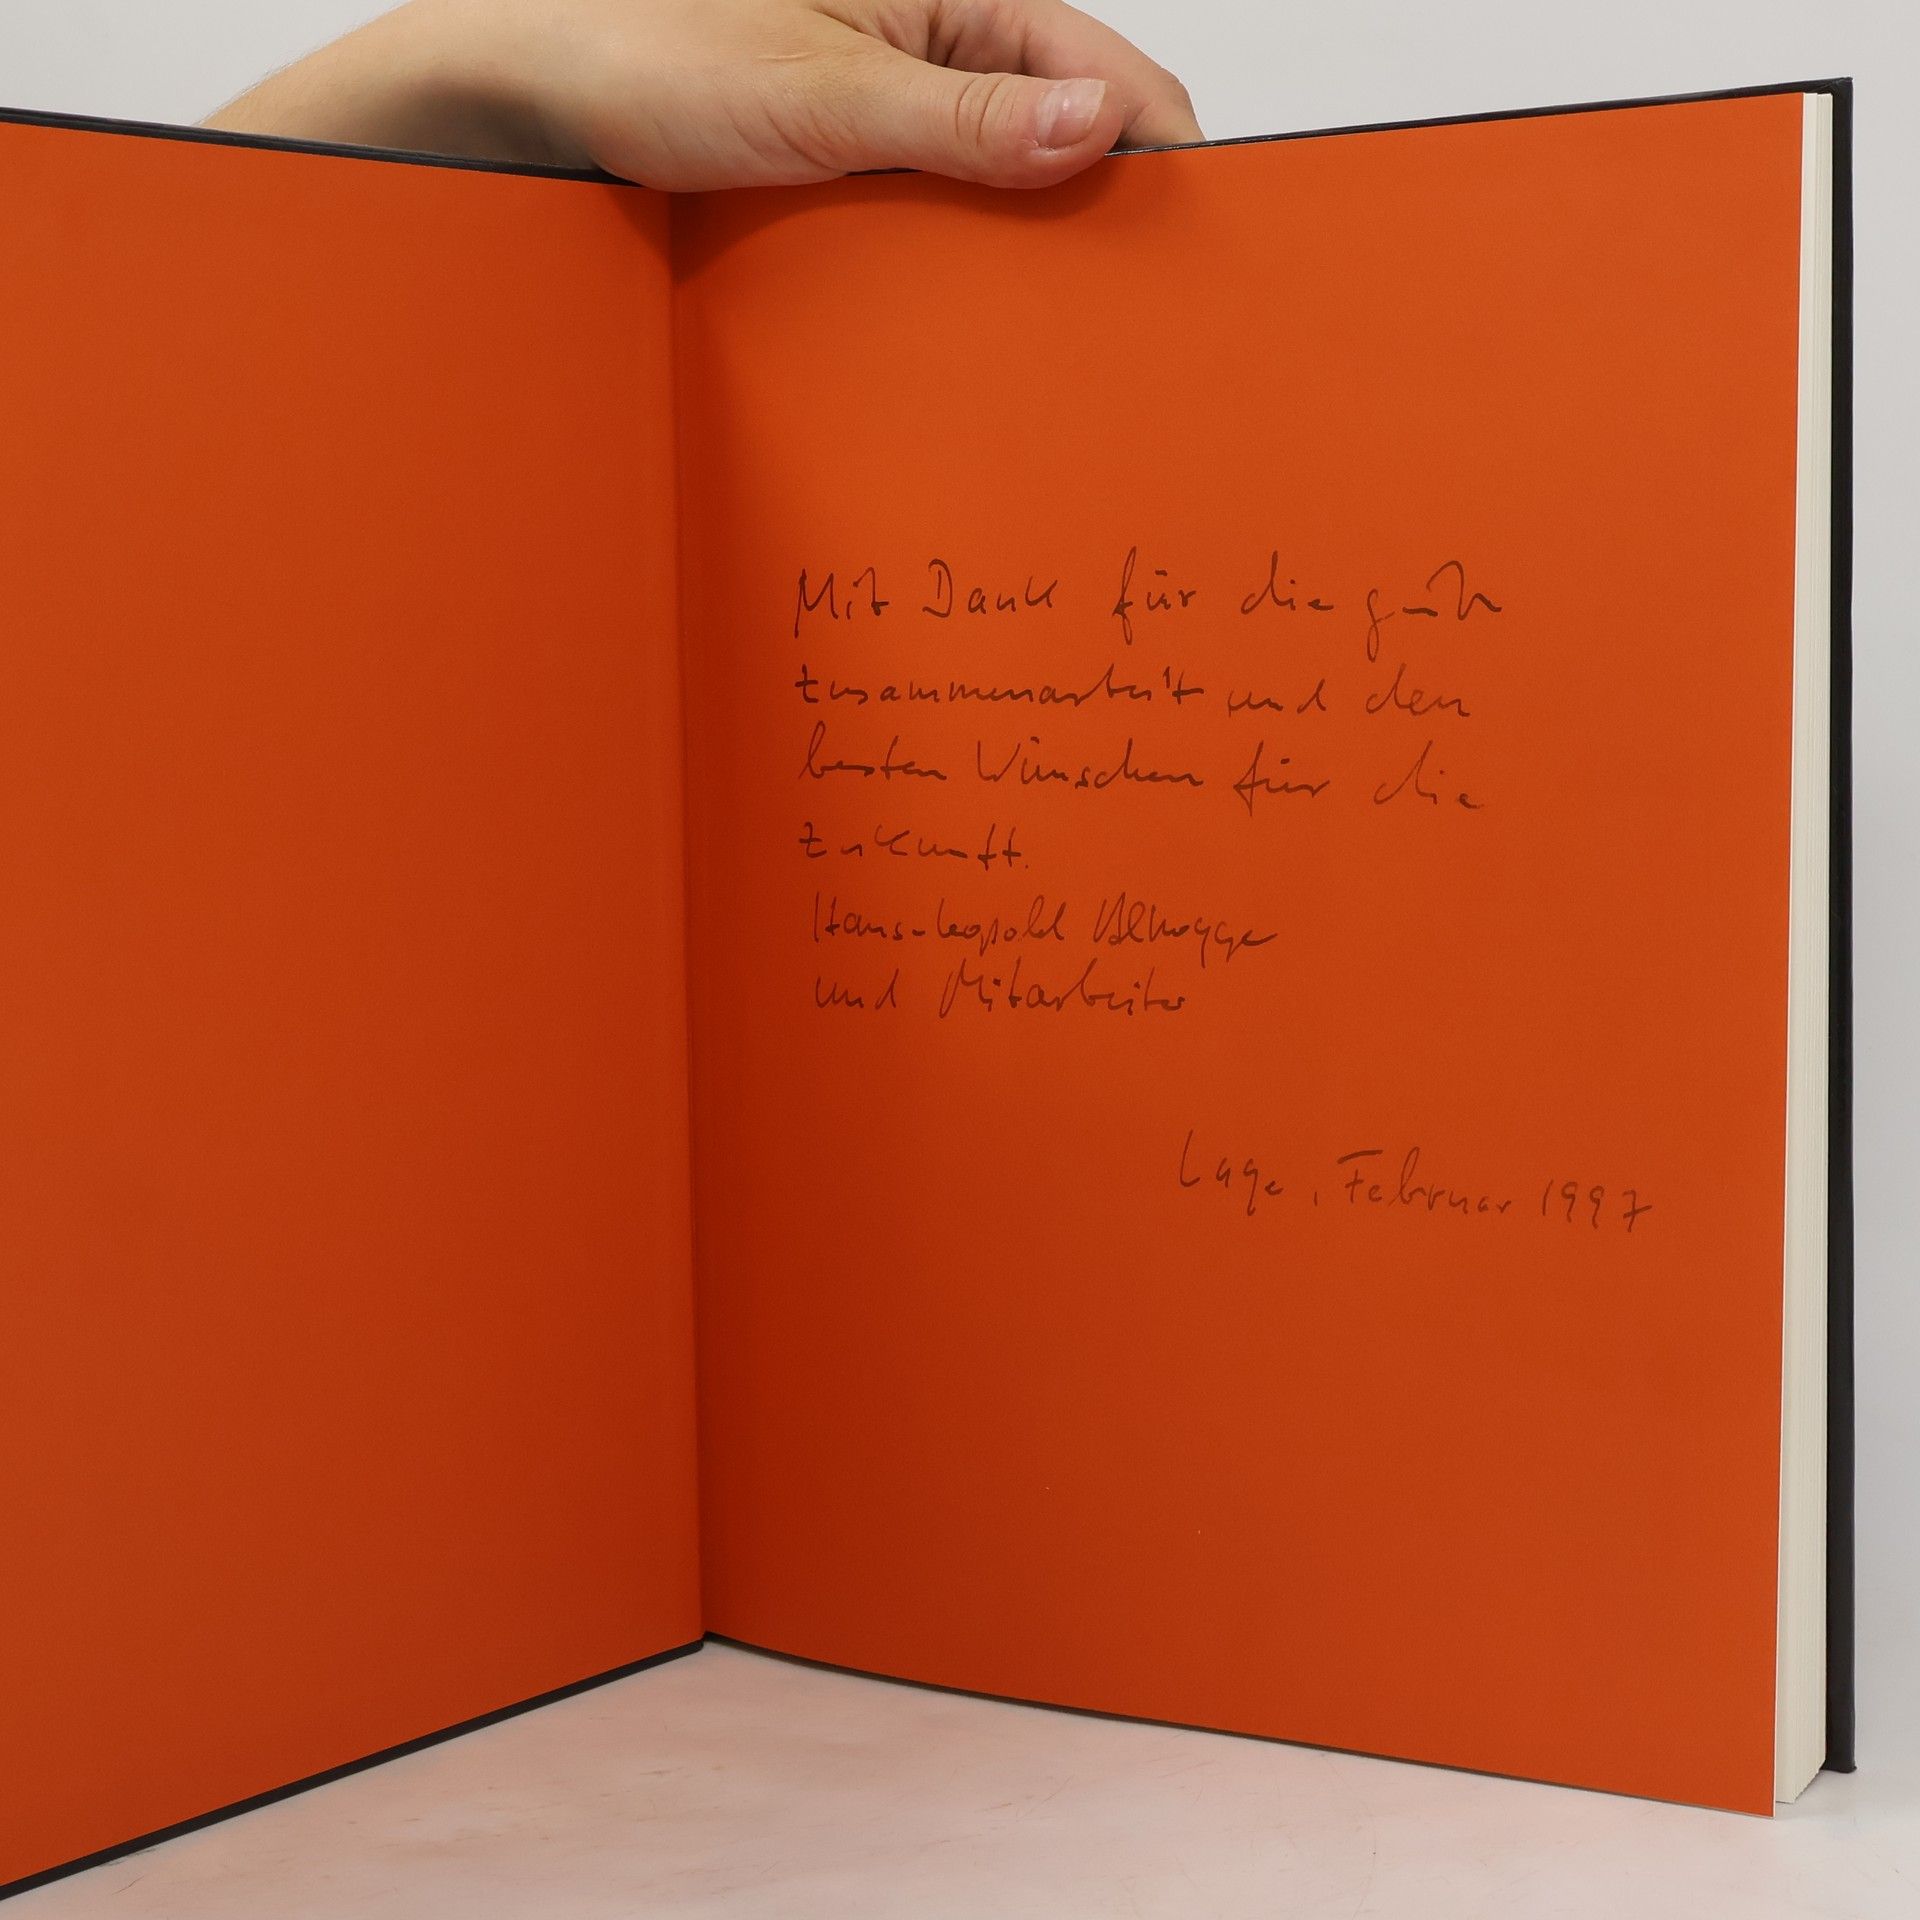 Mit Dank für die gute
Zusammenarbeit und den
besten Wünschen für die
Zukunft.
Hans-Leopold
und Mitarbeiter
Lage, Februar 1997